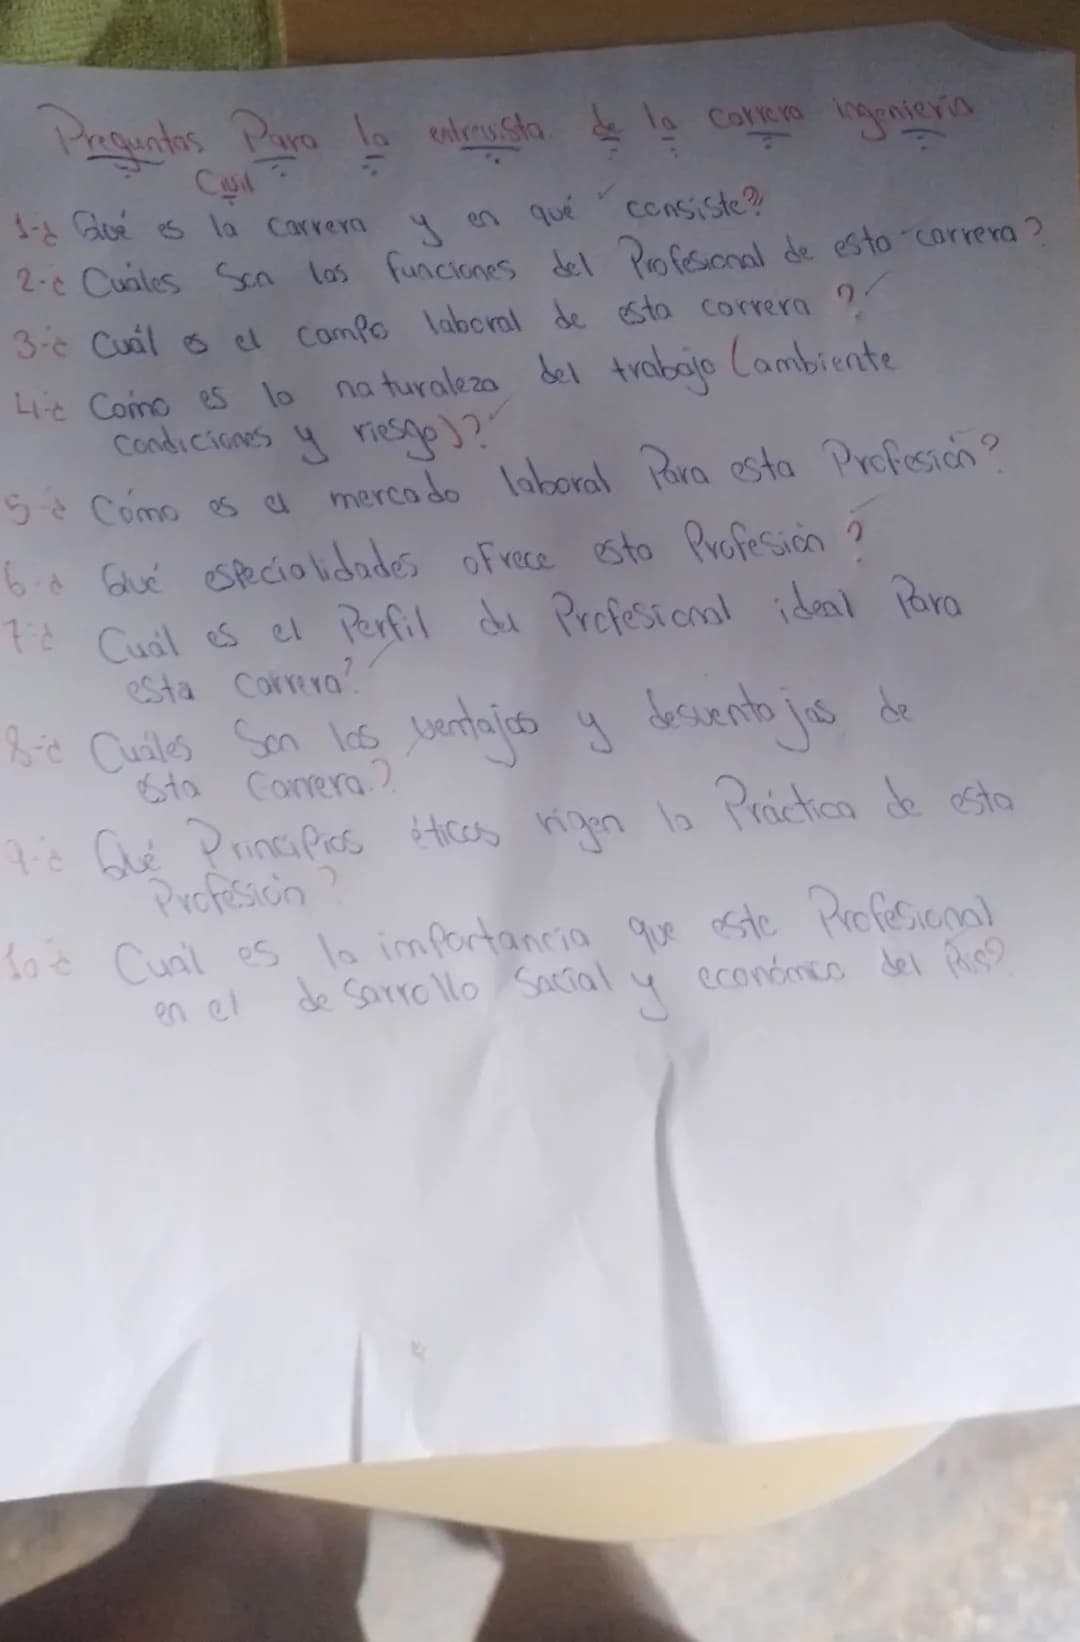 Preguntas Para la entrevista de la carrera ingenieria
Civil
1-¿ Qué es la carrera y en qué consiste?
2-¿ Cuáles Son las funciones del Profesional de esta carrera?
3-¿ Cuál es el campo laboral de esta carrera?
4-¿ Cómo es la naturaleza del trabajo (ambiente
condiciones y riesgo)?
5-¿ Cómo es el mercado laboral Para esta Profesión?
6-¿ Qué especialidades ofrece esta Profesión?
7-¿ Cuál es el Perfil del Profesional ideal Para
esta Carrera?
8-¿ Cuáles Son las ventajas y desventajas de
esta Carrera.?
9-¿ Qué Principios éticos rigen la Práctica de esta
Profesión?
10-¿ Cuál es la importancia que este Profesional
en el desarrollo Social y económico del País?